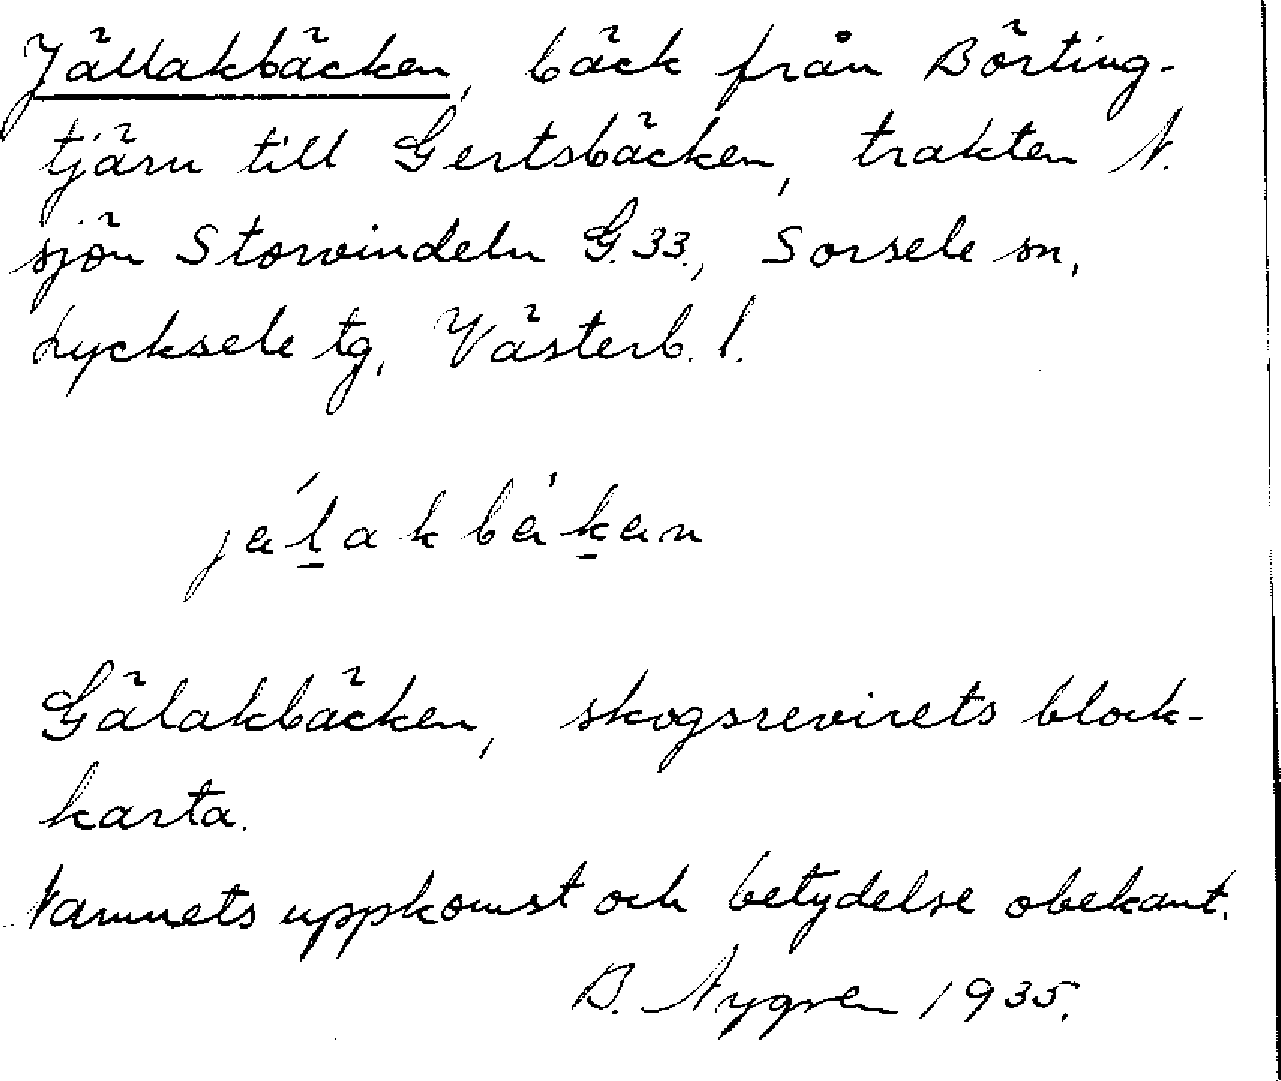 Jällakbäcken, bäck från Börting-
tjärn till Gertsbäcken, trakten N.
sjön Storvindeln G.33., Sorsele sn,
Lycksele tg, Västerb. l.
jälakbäkan
Gälakbäcken, skogsrevirets block-
karta.
Namnets uppkomst och betydelse obekant.
B. Nygren 1935.